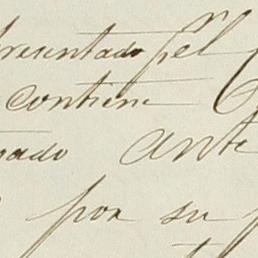 presentado pr el
contiene
ante
por su